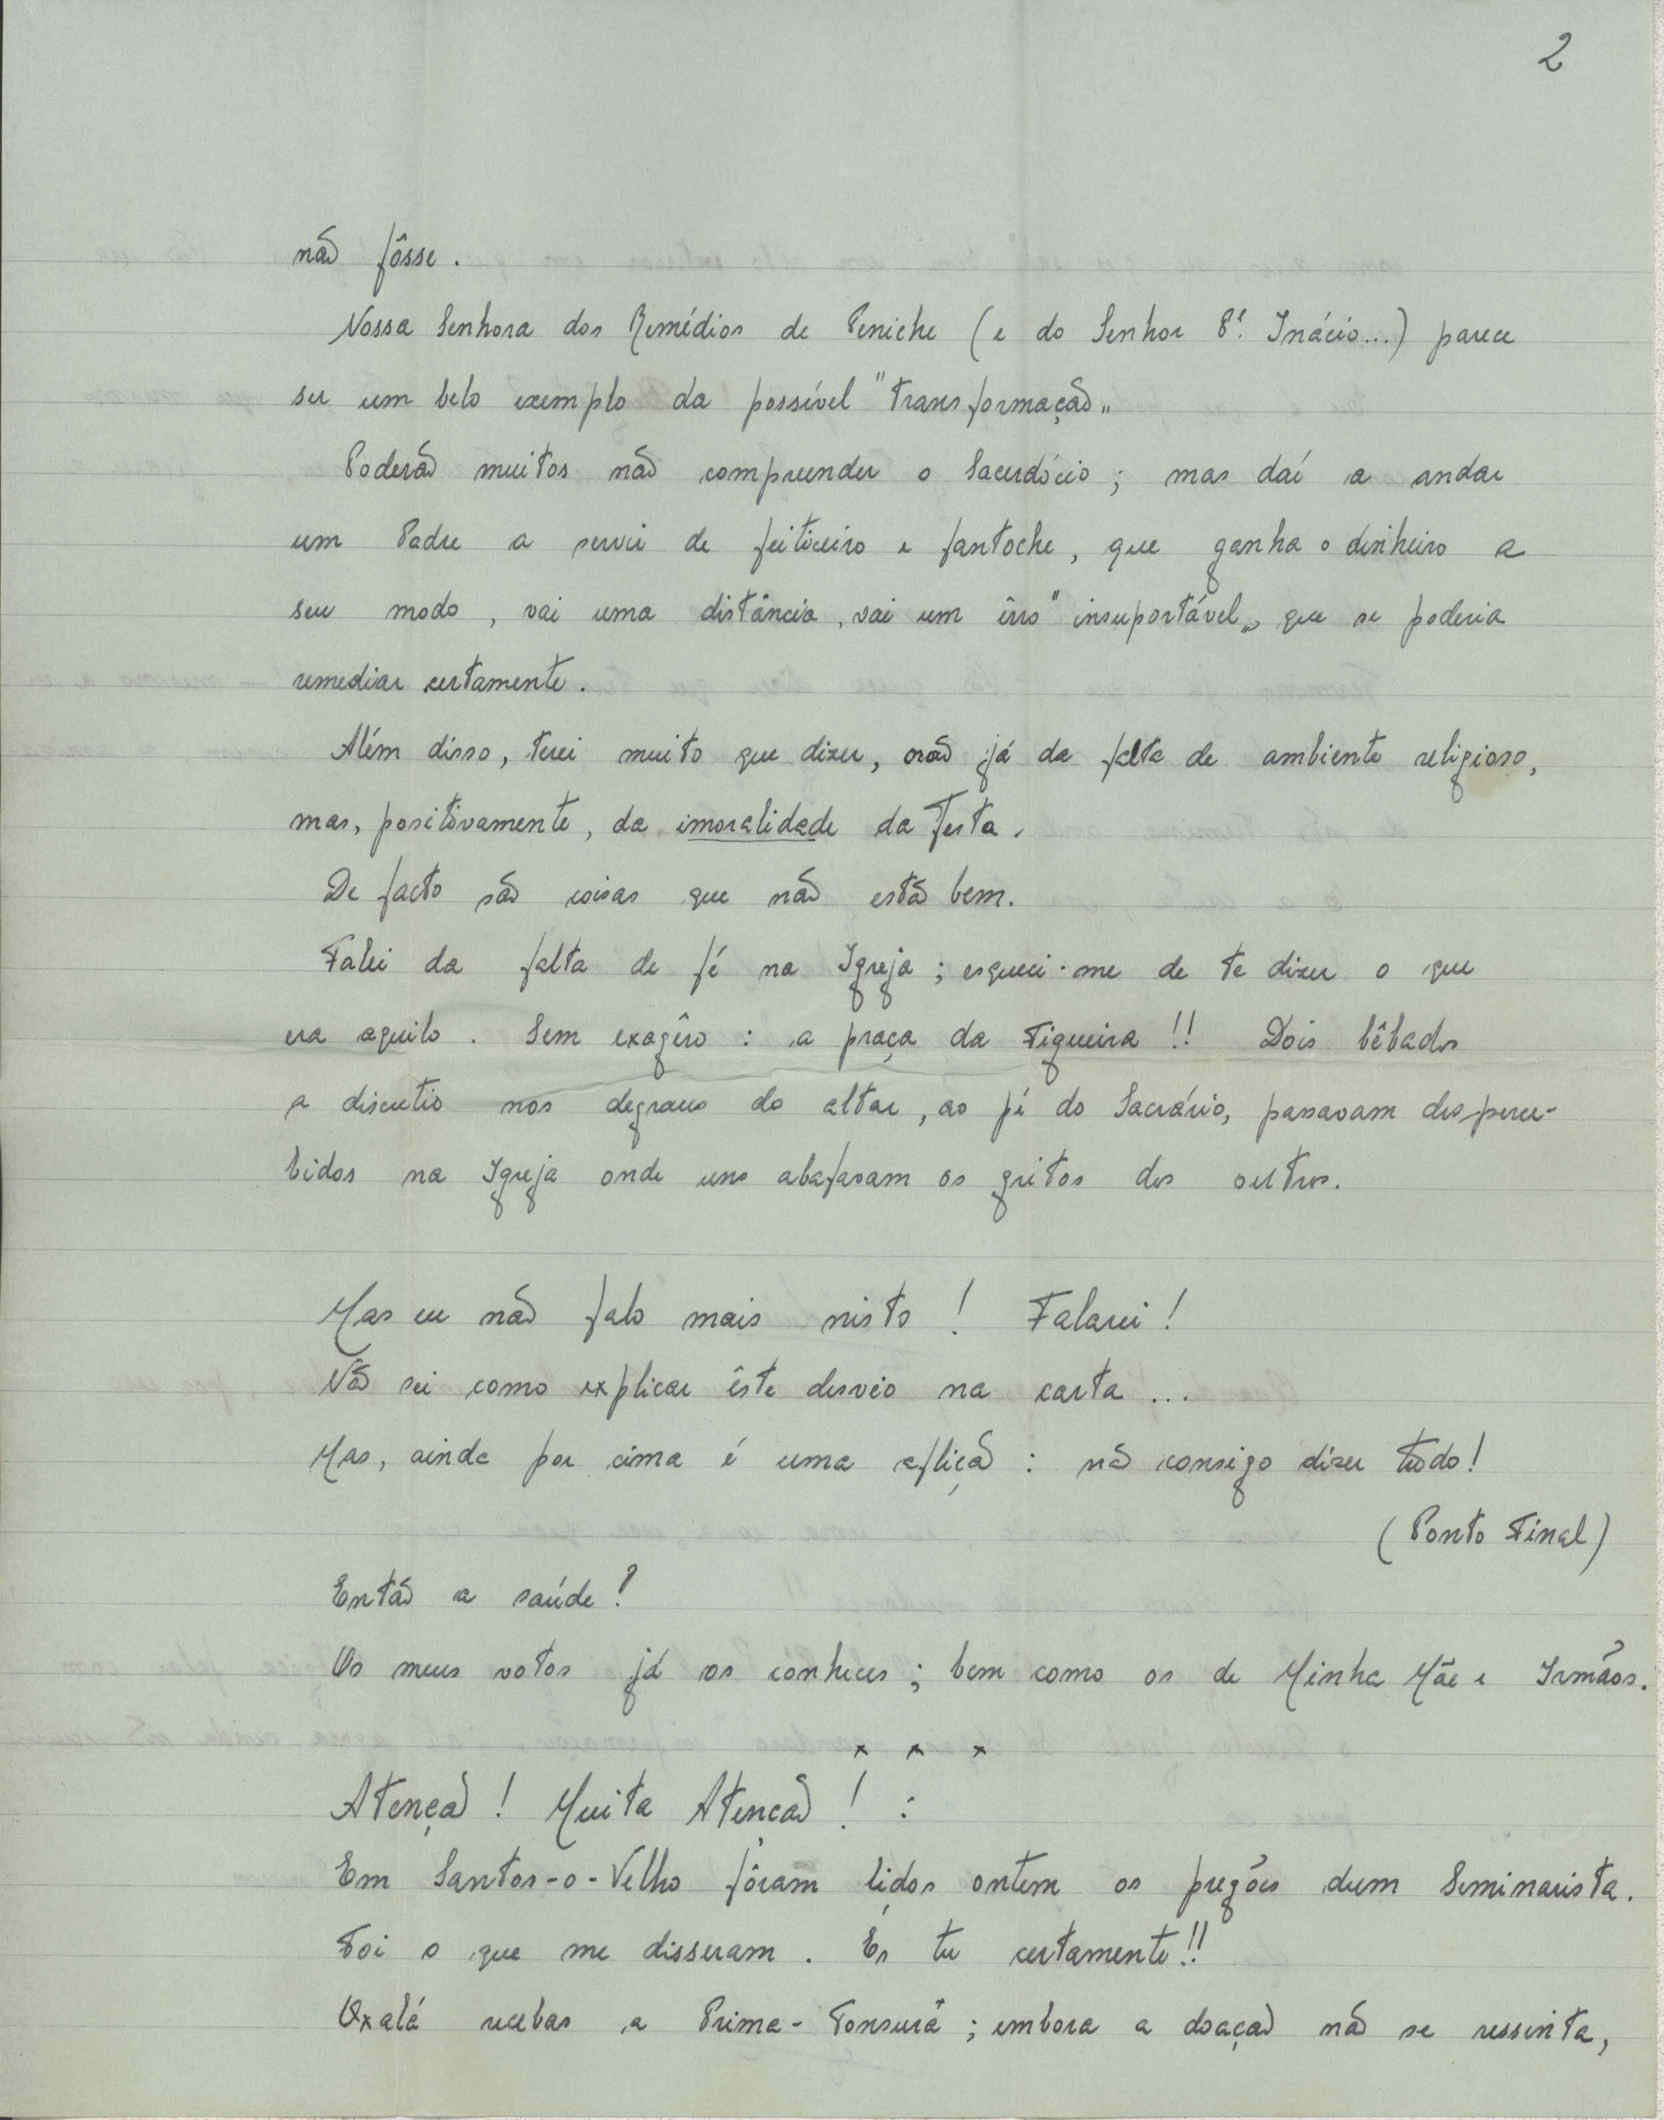 2
não fôsse.
Nossa Senhora dos Remédios de Peniche (e do Senhor Pᵉ. Inácio...) parece
ser um belo exemplo da possível "transformação„
Poderão muitos não compreender o Sacerdócio; mas daí a andar
um Padre a servir de feiticeiro e fantoche, que ganha o dinheiro a
seu modo, vai uma distância, vai um êrro "insuportável„, que se poderia
remediar certamente.
Além disso, terei muito que dizer, não já da falta de ambiente religioso,
mas, positivamente, da imoralidade da Festa.
De facto são coisas que não estão bem.
Falei da falta de fé na Igreja; esqueci-me de te dizer o que
era aquilo. Sem exagêro: a praça da Figueira!! Dois bêbados
a discutir nos degraus do altar, ao pé do Sacrário, passavam desperce-
bidos na Igreja onde uns abafavam os gritos dos outros.
Mas eu não falo mais nisto! Falarei!
Não sei como explicar êste desvio na carta...
Mas, ainda por cima é uma aflição: não consigo dizer tudo!
(Ponto Final)
Então a saúde?
Os meus votos já os conheces; bem como os de Minha Mãe e Irmãos.
x x x
Atenção! Muita Atenção!:
Em Santos-o-Velho fôram lidos ontem os pregões dum Seminarista.
Foi o que me disseram. És tu certamente!!
Oxalá recebas a Prima-Tonsura; embora a doação não se ressinta,